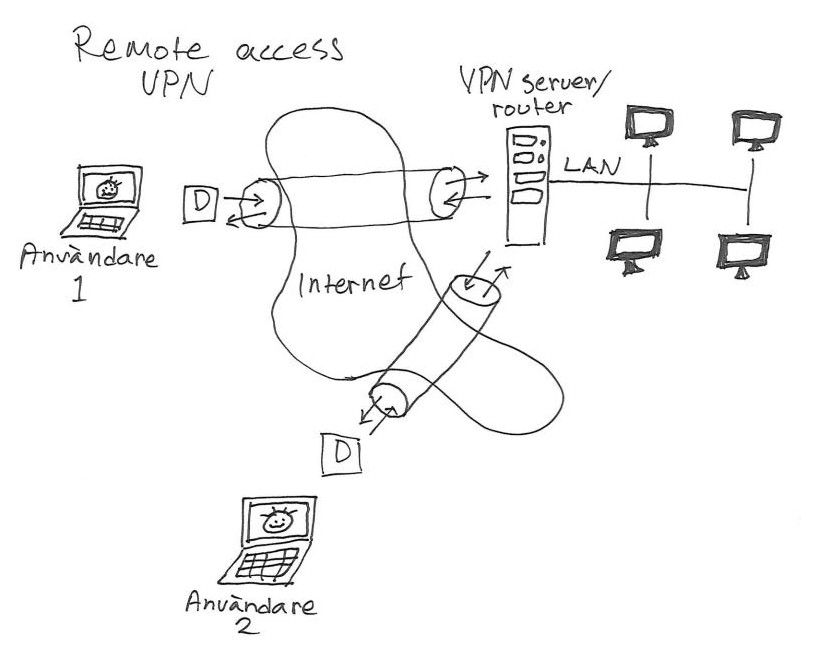 Remote access
VPN
VPN server/
router
LAN
D
Användare
1
Internet
D
Användare
2